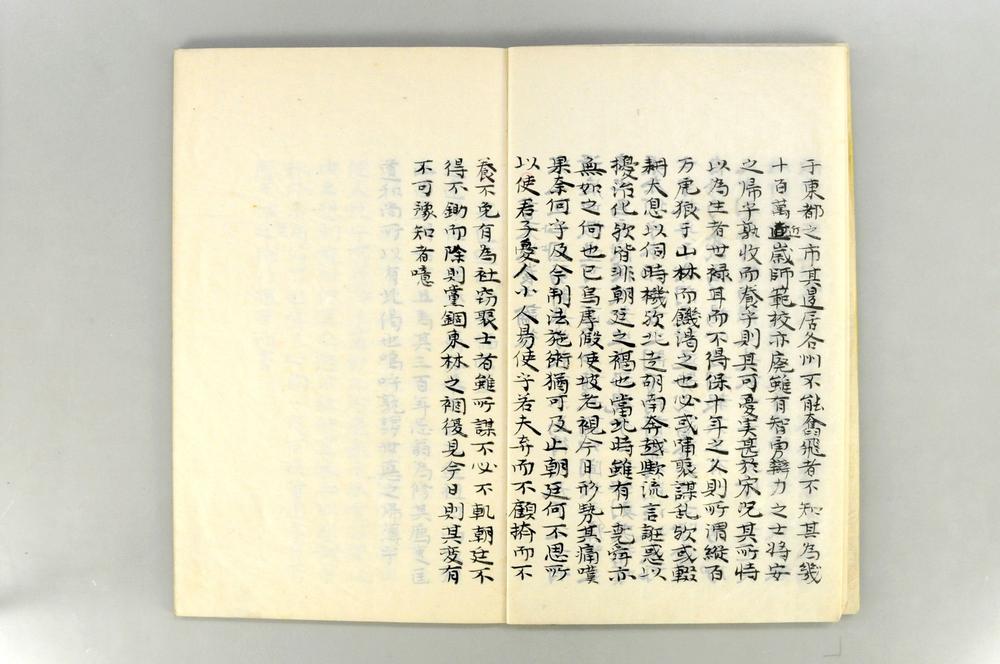 于東都之市其退居各州不能奮飛者不知其為幾
十百萬近歳師範校亦廃雖有智勇辯力之士将安
之帰乎孰收而養乎則其可憂実甚於宋况其所恃
以為生者世禄耳而不得保十年之久則所謂縦百
万虎狼于山林而饑渇之也必或嘯聚謀乱歟或輟
耕大息以伺時機歟北走胡南奔越歟流言誑惑以
擾治化歟皆非朝廷之禍也當此時雖有十尭舜亦
無如之何也已烏虖假使坡老視今日形勢其痛嘆
果奈何乎及今制法施術猶可及止朝廷何不思所
以使君子憂人小人易使乎若夫弃而不顧擠而不
養不免有為社窃聚士者雖所謀不必不軌朝廷不
得不鋤而除則黨錮東林之禍復見今日則其変有
不可豫知者噫